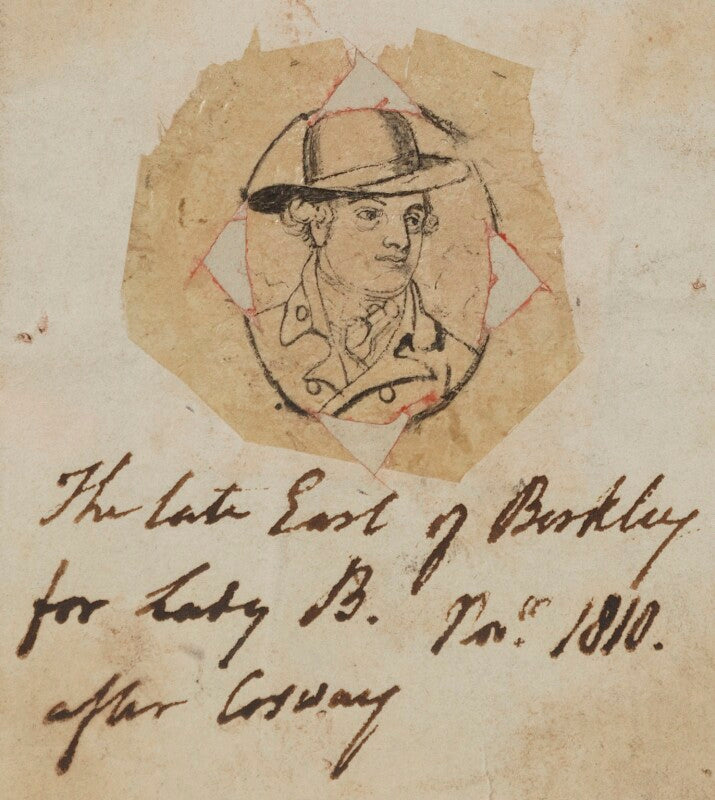 The late Earl of Berkley
for Lady B. Nov.r 1810.
after Cosway